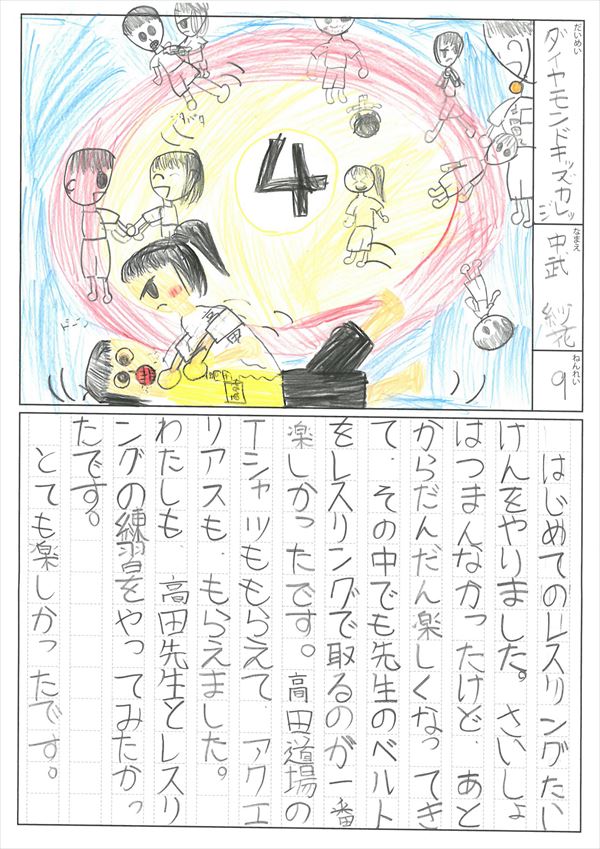 だいめい
ダイヤモンドキッズカレッジ
なまえ
中武 紗花
ねんれい
9
4
ドーン
高田
はじめてのレスリングたい
けんをやりました。さいしょ
はつまんなかったけど、あと
からだんだん楽しくなってき
て、その中でも先生のベルト
をレスリングで取るのが一番
楽しかったです。高田道場の
Tシャツももらえて、アクエ
リアスも、もらえました。
わたしも、高田先生とレスリ
ングの練習をやってみたかっ
たです。
とても楽しかったです。